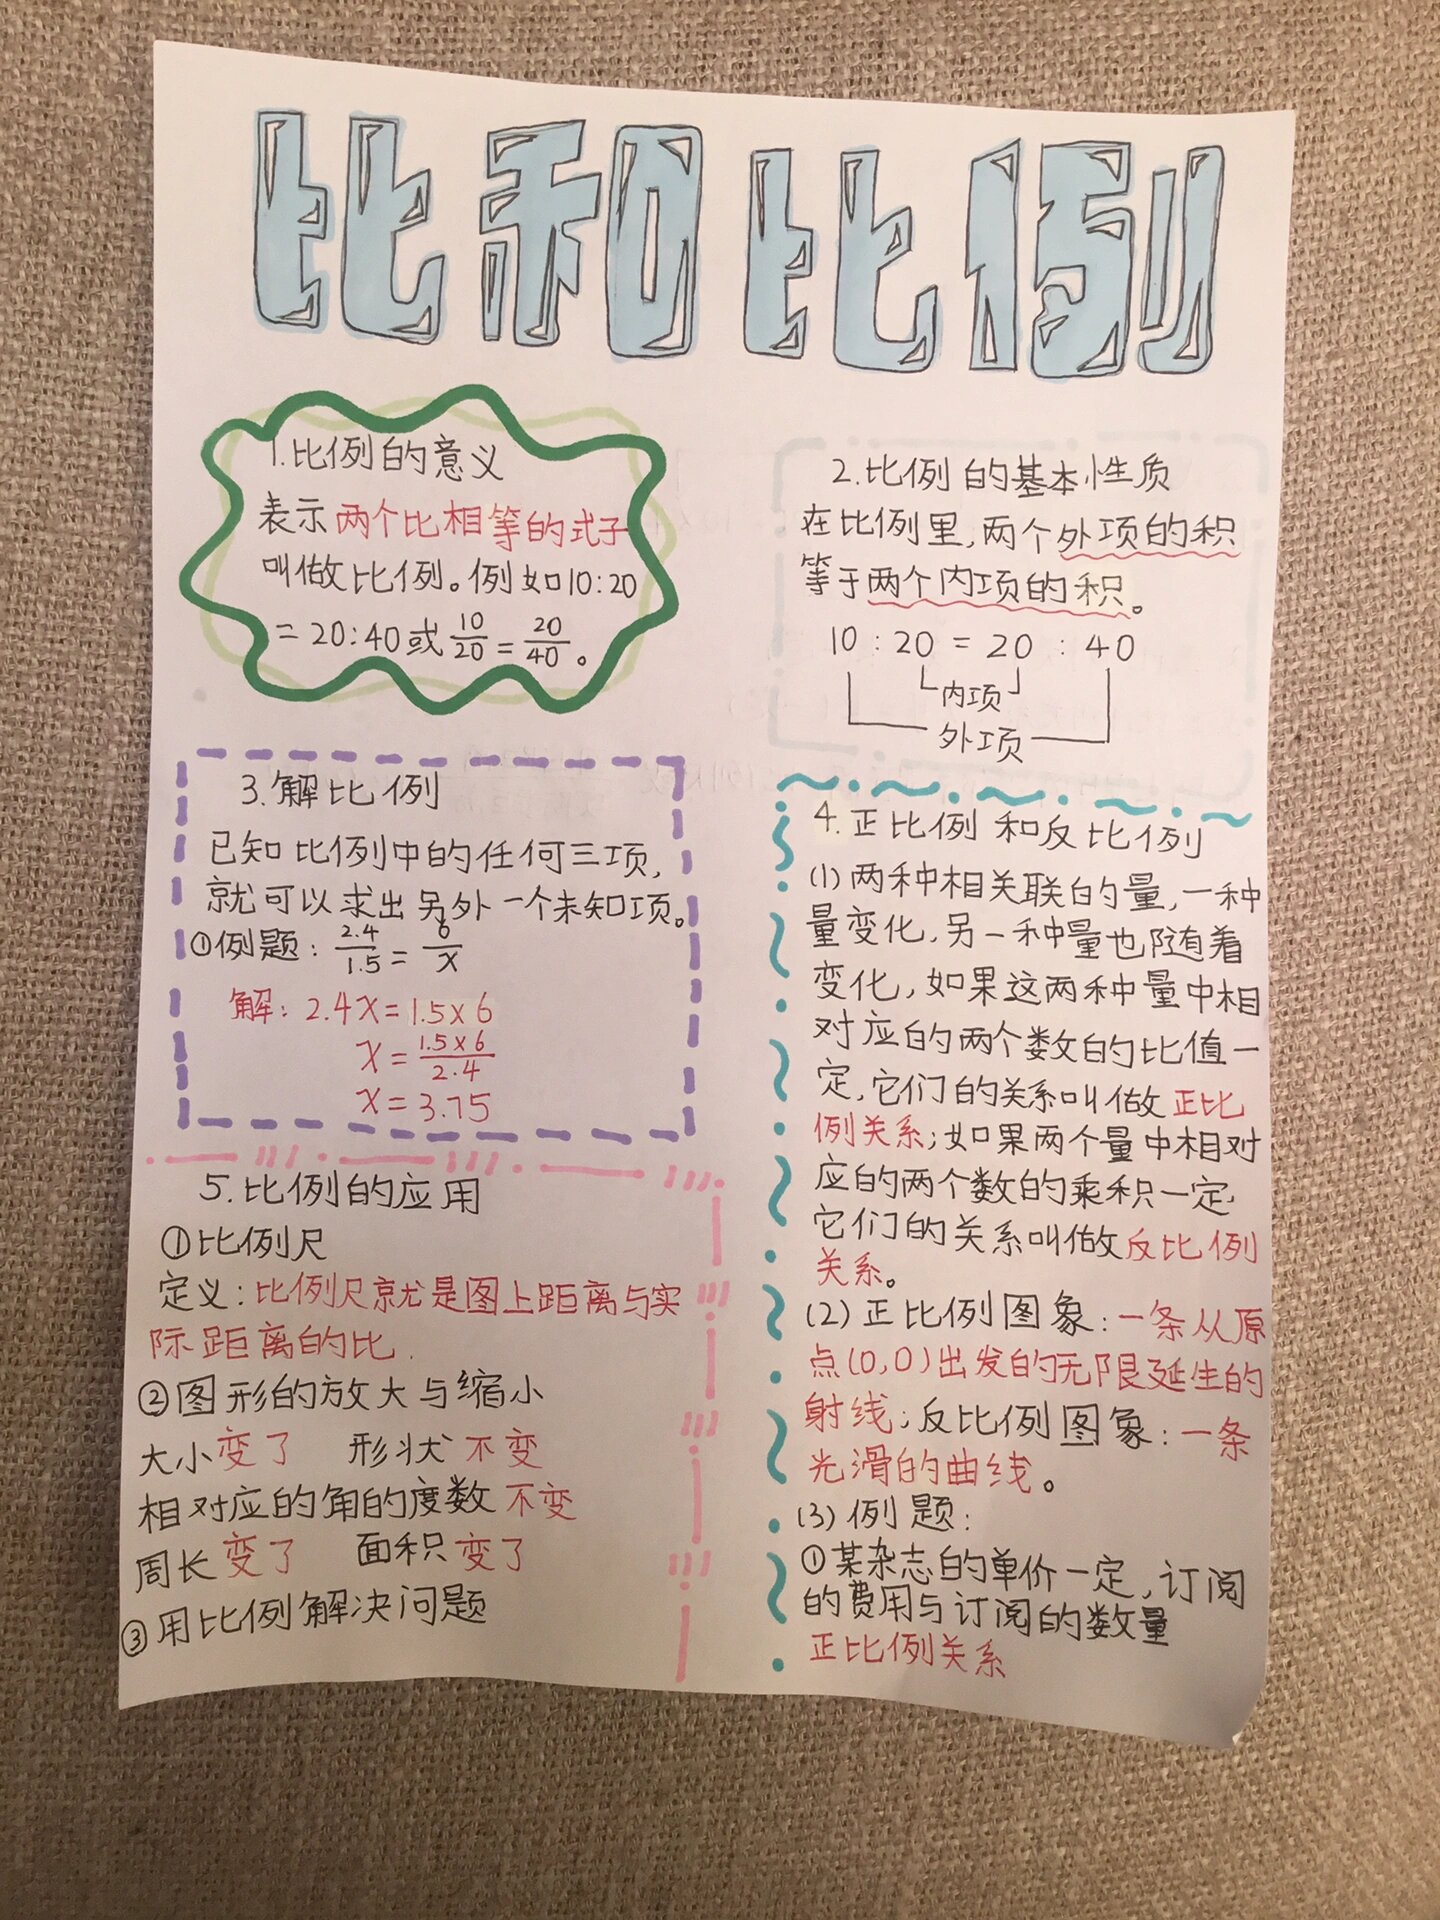 比和比例
1.比例的意义
表示两个比相等的式子
叫做比例。例如10:20
=20:40或10/20=20/40。
2.比例的基本性质
在比例里,两个外项的积
等于两个内项的积。
10:20=20:40
内项
外项
3.解比例
已知比例中的任何三项,
就可以求出另外一个未知项。
①例题:2.4/1.5=6/x
解:2.4x=1.5×6
x=1.5×6/2.4
x=3.75
4.正比例和反比例
(1)两种相关联的量,一种
量变化,另一种量也随着
变化,如果这两种量中相
对应的两个数的比值一
定,它们的关系叫做正比
例关系;如果两个量中相对
应的两个数的乘积一定,
它们的关系叫做反比例
关系。
(2)正比例图象:一条从原
点(0,0)出发的无限延生的
射线;反比例图象:一条
光滑的曲线。
(3)例题:
①某杂志的单价一定,订阅
的费用与订阅的数量
正比例关系
5.比例的应用
①比例尺
定义:比例尺就是图上距离与实
际距离的比.
②图形的放大与缩小
大小变了 形状不变
相对应的角的度数不变
周长变了 面积变了
③用比例解决问题